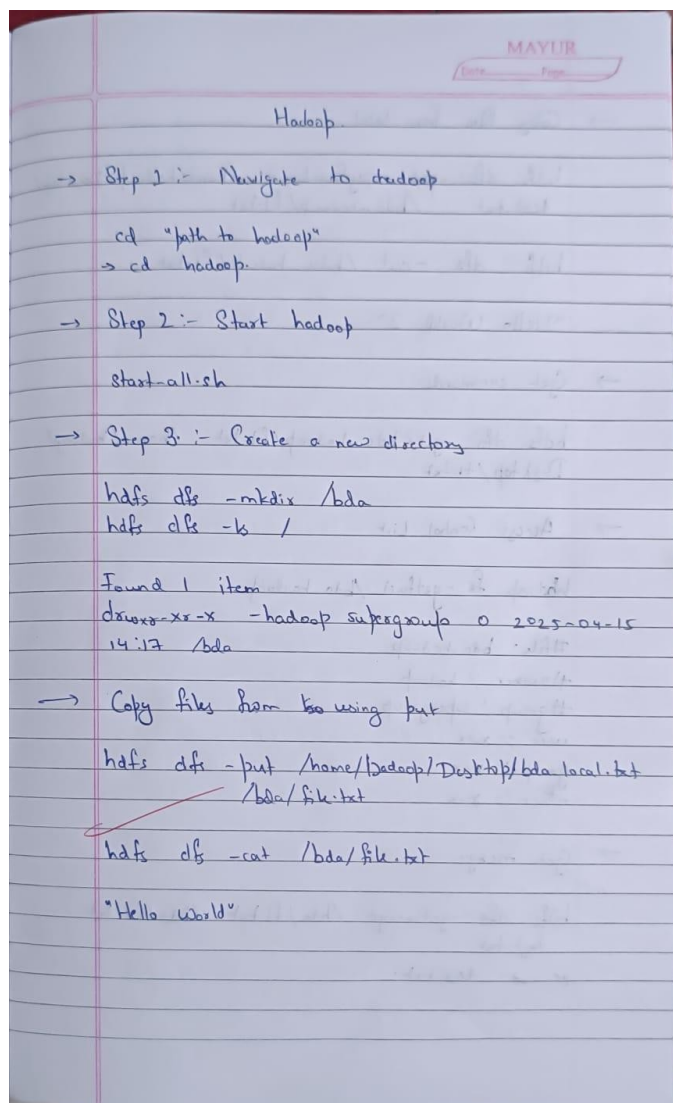 MAYUR
Date Page
Hadoop.
→ Step 1 :- Navigate to hadoop
cd "path to hadoop"
→ cd hadoop.
→ Step 2 :- Start hadoop
start-all.sh
→ Step 3. :- Create a new directory
hdfs dfs -mkdir /bda
hdfs dfs -ls /
Found 1 item
drwxr-xr-x -hadoop supergroup 0 2025-04-15
14:17 /bda
→ Copy files from using put
hdfs dfs -put /home/hadoop/Desktop/bda local.txt
/bda/file.txt
hdfs dfs -cat /bda/file.txt
"Hello World"